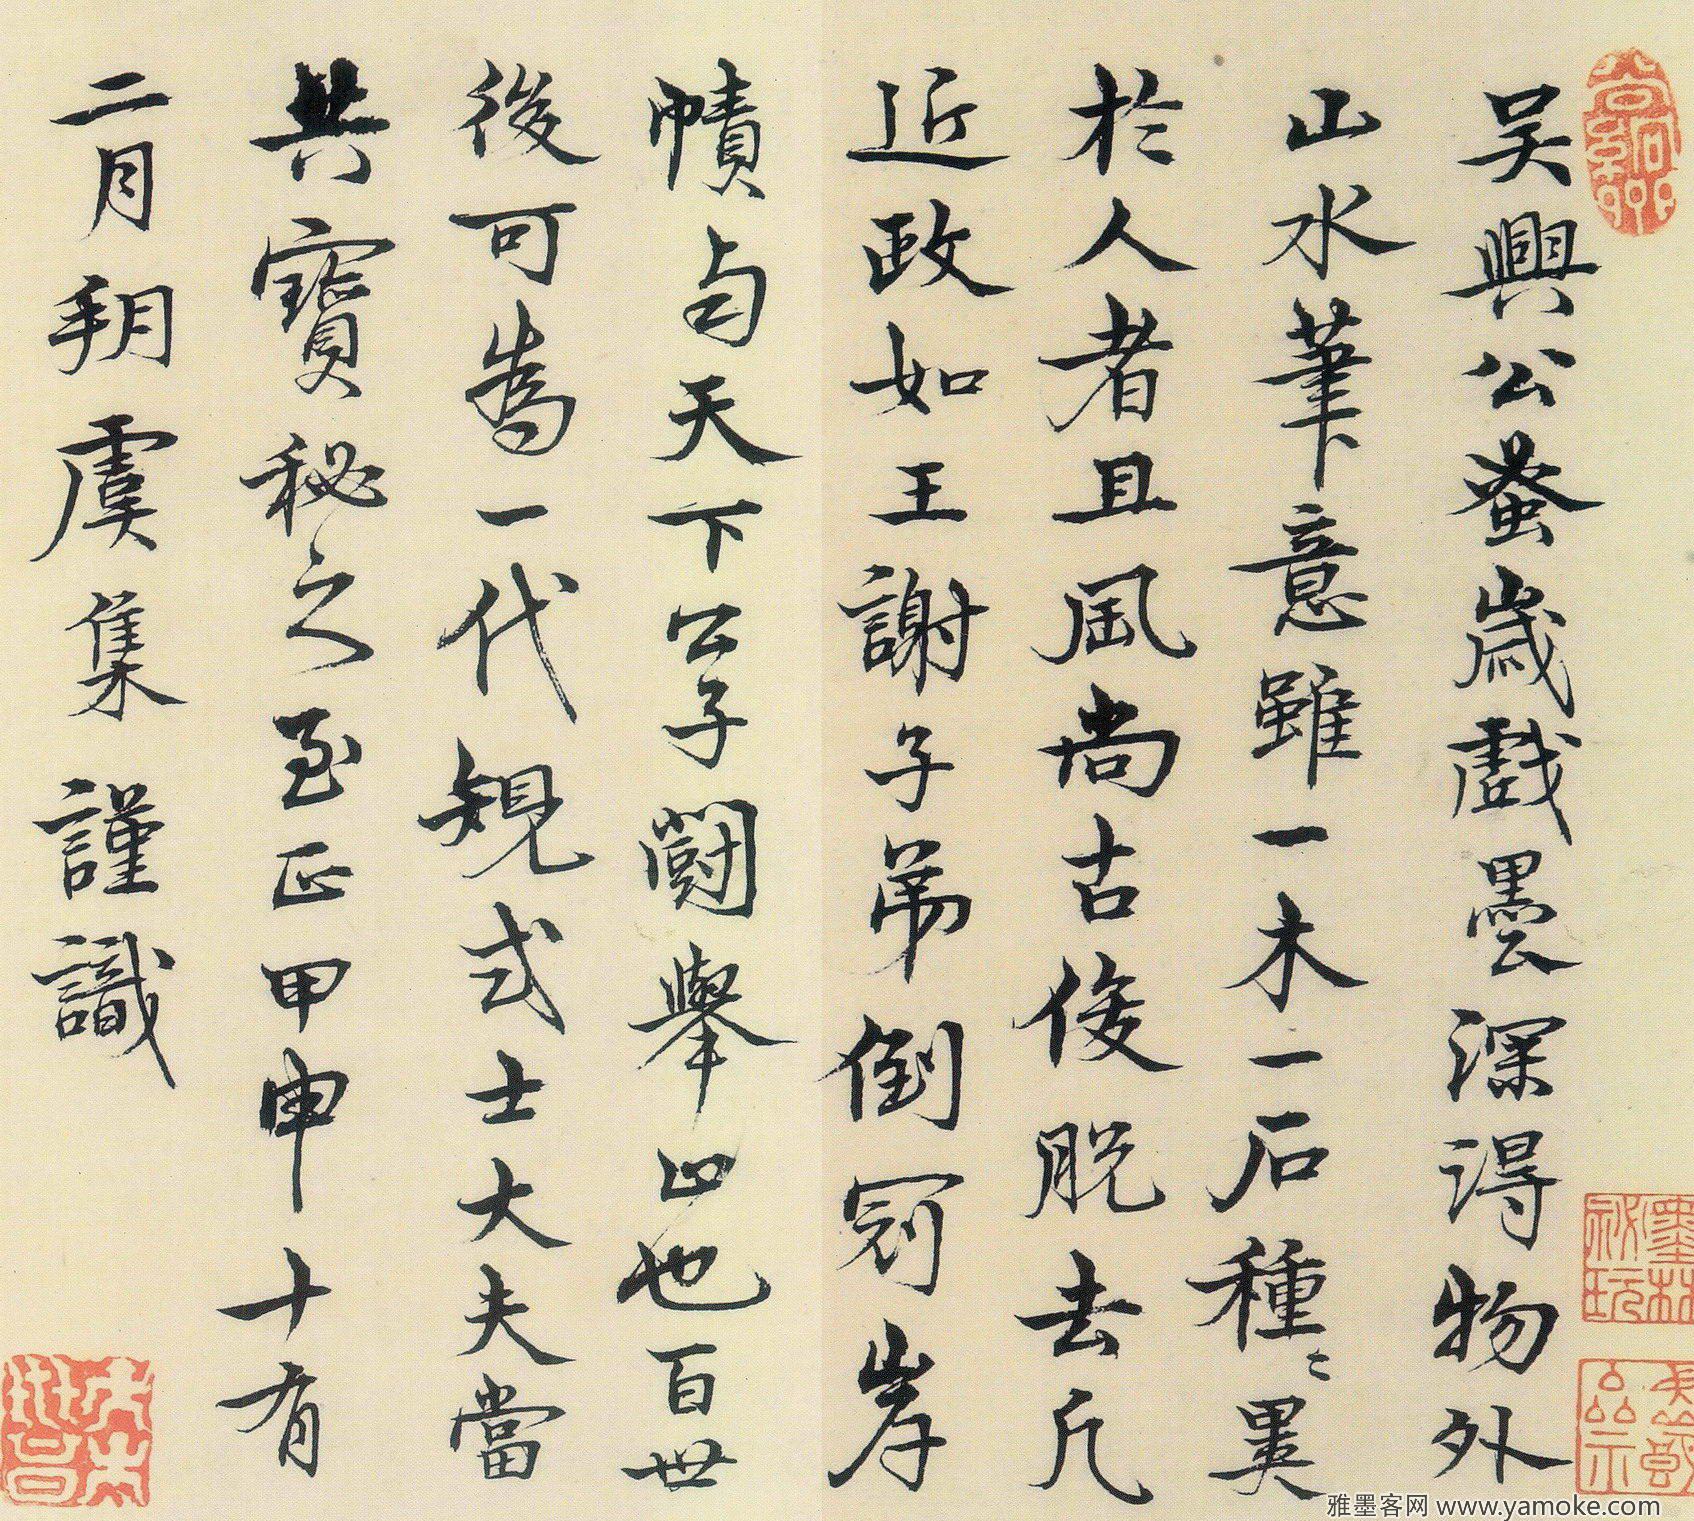 吳興公蚤歲戲墨深得物外
山水筆意雖一木一石種種異
於人者且風尚古俊脫去凡
近政如王謝子弟倒冠岸
幘與天下公子鬪舉止也百世
後可為一代規式士大夫當
共寶秘之至正甲申十有
二月朔虞集謹識
雅墨客网 www.yamoke.com